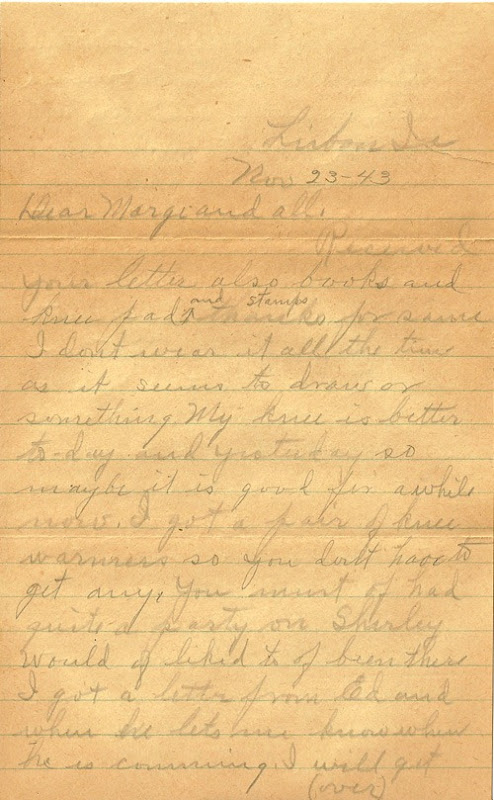 Lisbon Ia
Nov 23-43
Dear Margi and all.
Received
your letter also books and
knee pad and stamps thanks for same
I dont wear it all the time
as it seems to draw or
something My knee is better
to-day and yesterday so
maybe it is good for awhile
now. I got a pair of knee
warmers so you dont have to
get any. You must of had
quite a party on Shirley
would of liked to of been there
I got a letter from Ed and
when he lets me know when
he is comming. I will get
(over)